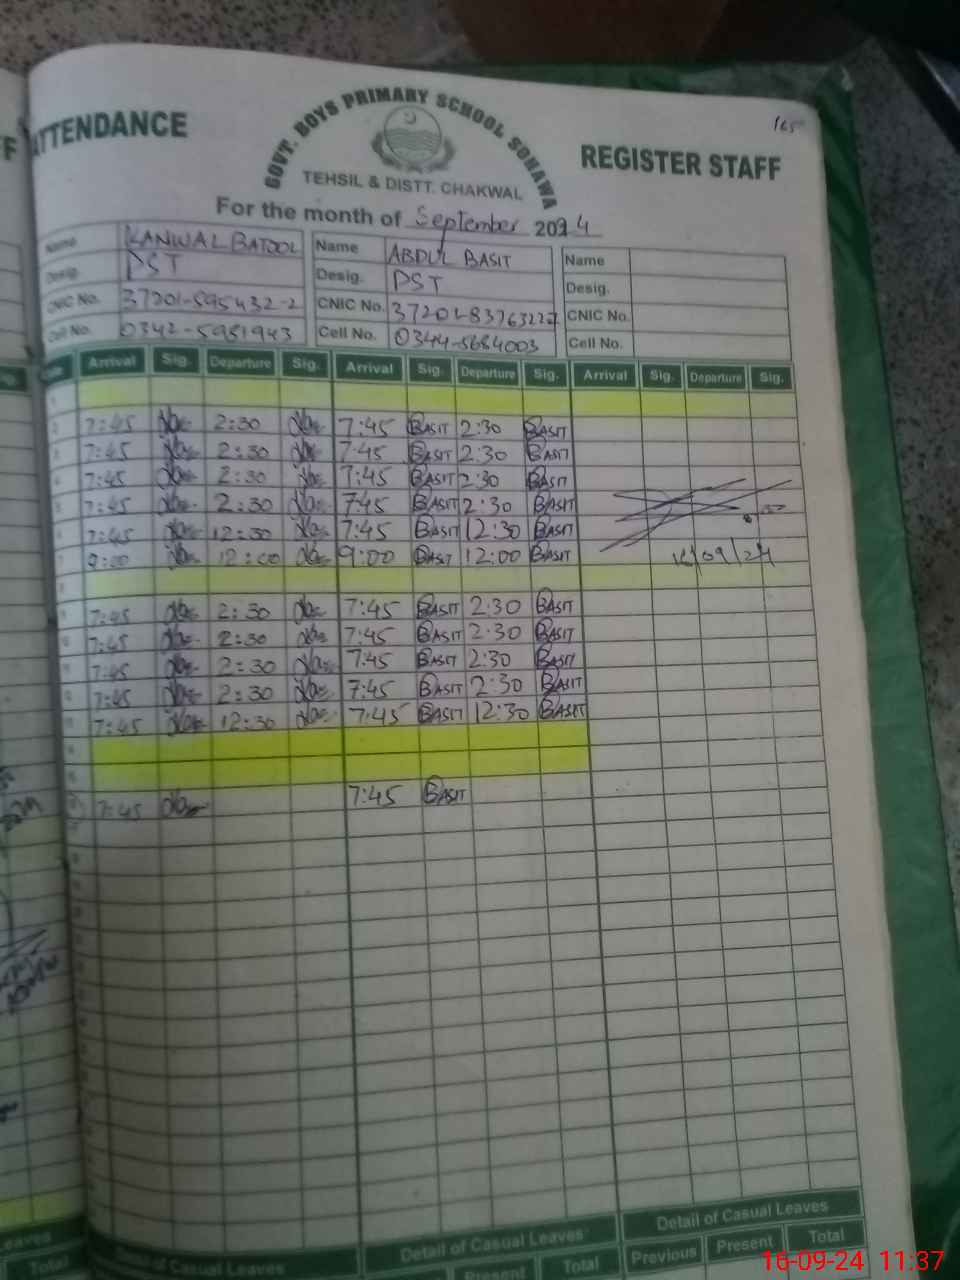 165
ATTENDANCE
GOVT. BOYS PRIMARY SCHOOL SOHAWA
REGISTER STAFF
TEHSIL & DISTT. CHAKWAL
For the month of September 2024
Name KANWAL BATOOL Name ABDUL BASIT Name
Desig. PST Desig. PST Desig.
CNIC No. 37201-595432-2 CNIC No. CNIC No.
Cell No. 0342-5981943 Cell No. 0344-5684003 Cell No.
Arrival Sig. Departure Sig. Arrival Sig. Departure Sig. Arrival Sig. Departure Sig.
1
2 7:45 2:30 7:45 BASIT 2:30 BASIT
3 7:45 2:30 7:45 BASIT 2:30 BASIT
4 7:45 2:30 7:45 BASIT 2:30 BASIT
5 7:45 2:30 7:45 BASIT 2:30 BASIT
6 7:45 12:30 7:45 BASIT 12:30 BASIT
7 9:00 12:00 9:00 BASIT 12:00 BASIT 16/09/24
8
9 7:45 2:30 7:45 BASIT 2:30 BASIT
10 7:45 2:30 7:45 BASIT 2:30 BASIT
11 7:45 2:30 7:45 BASIT 2:30 BASIT
12 7:45 2:30 7:45 BASIT 2:30 BASIT
13 7:45 12:30 7:45 BASIT 12:30 BASIT
14
15
16 7:45 7:45 BASIT
Detail of Casual Leaves Detail of Casual Leaves Detail of Casual Leaves
Total Present Total Previous Present Total
16-09-24 11:37